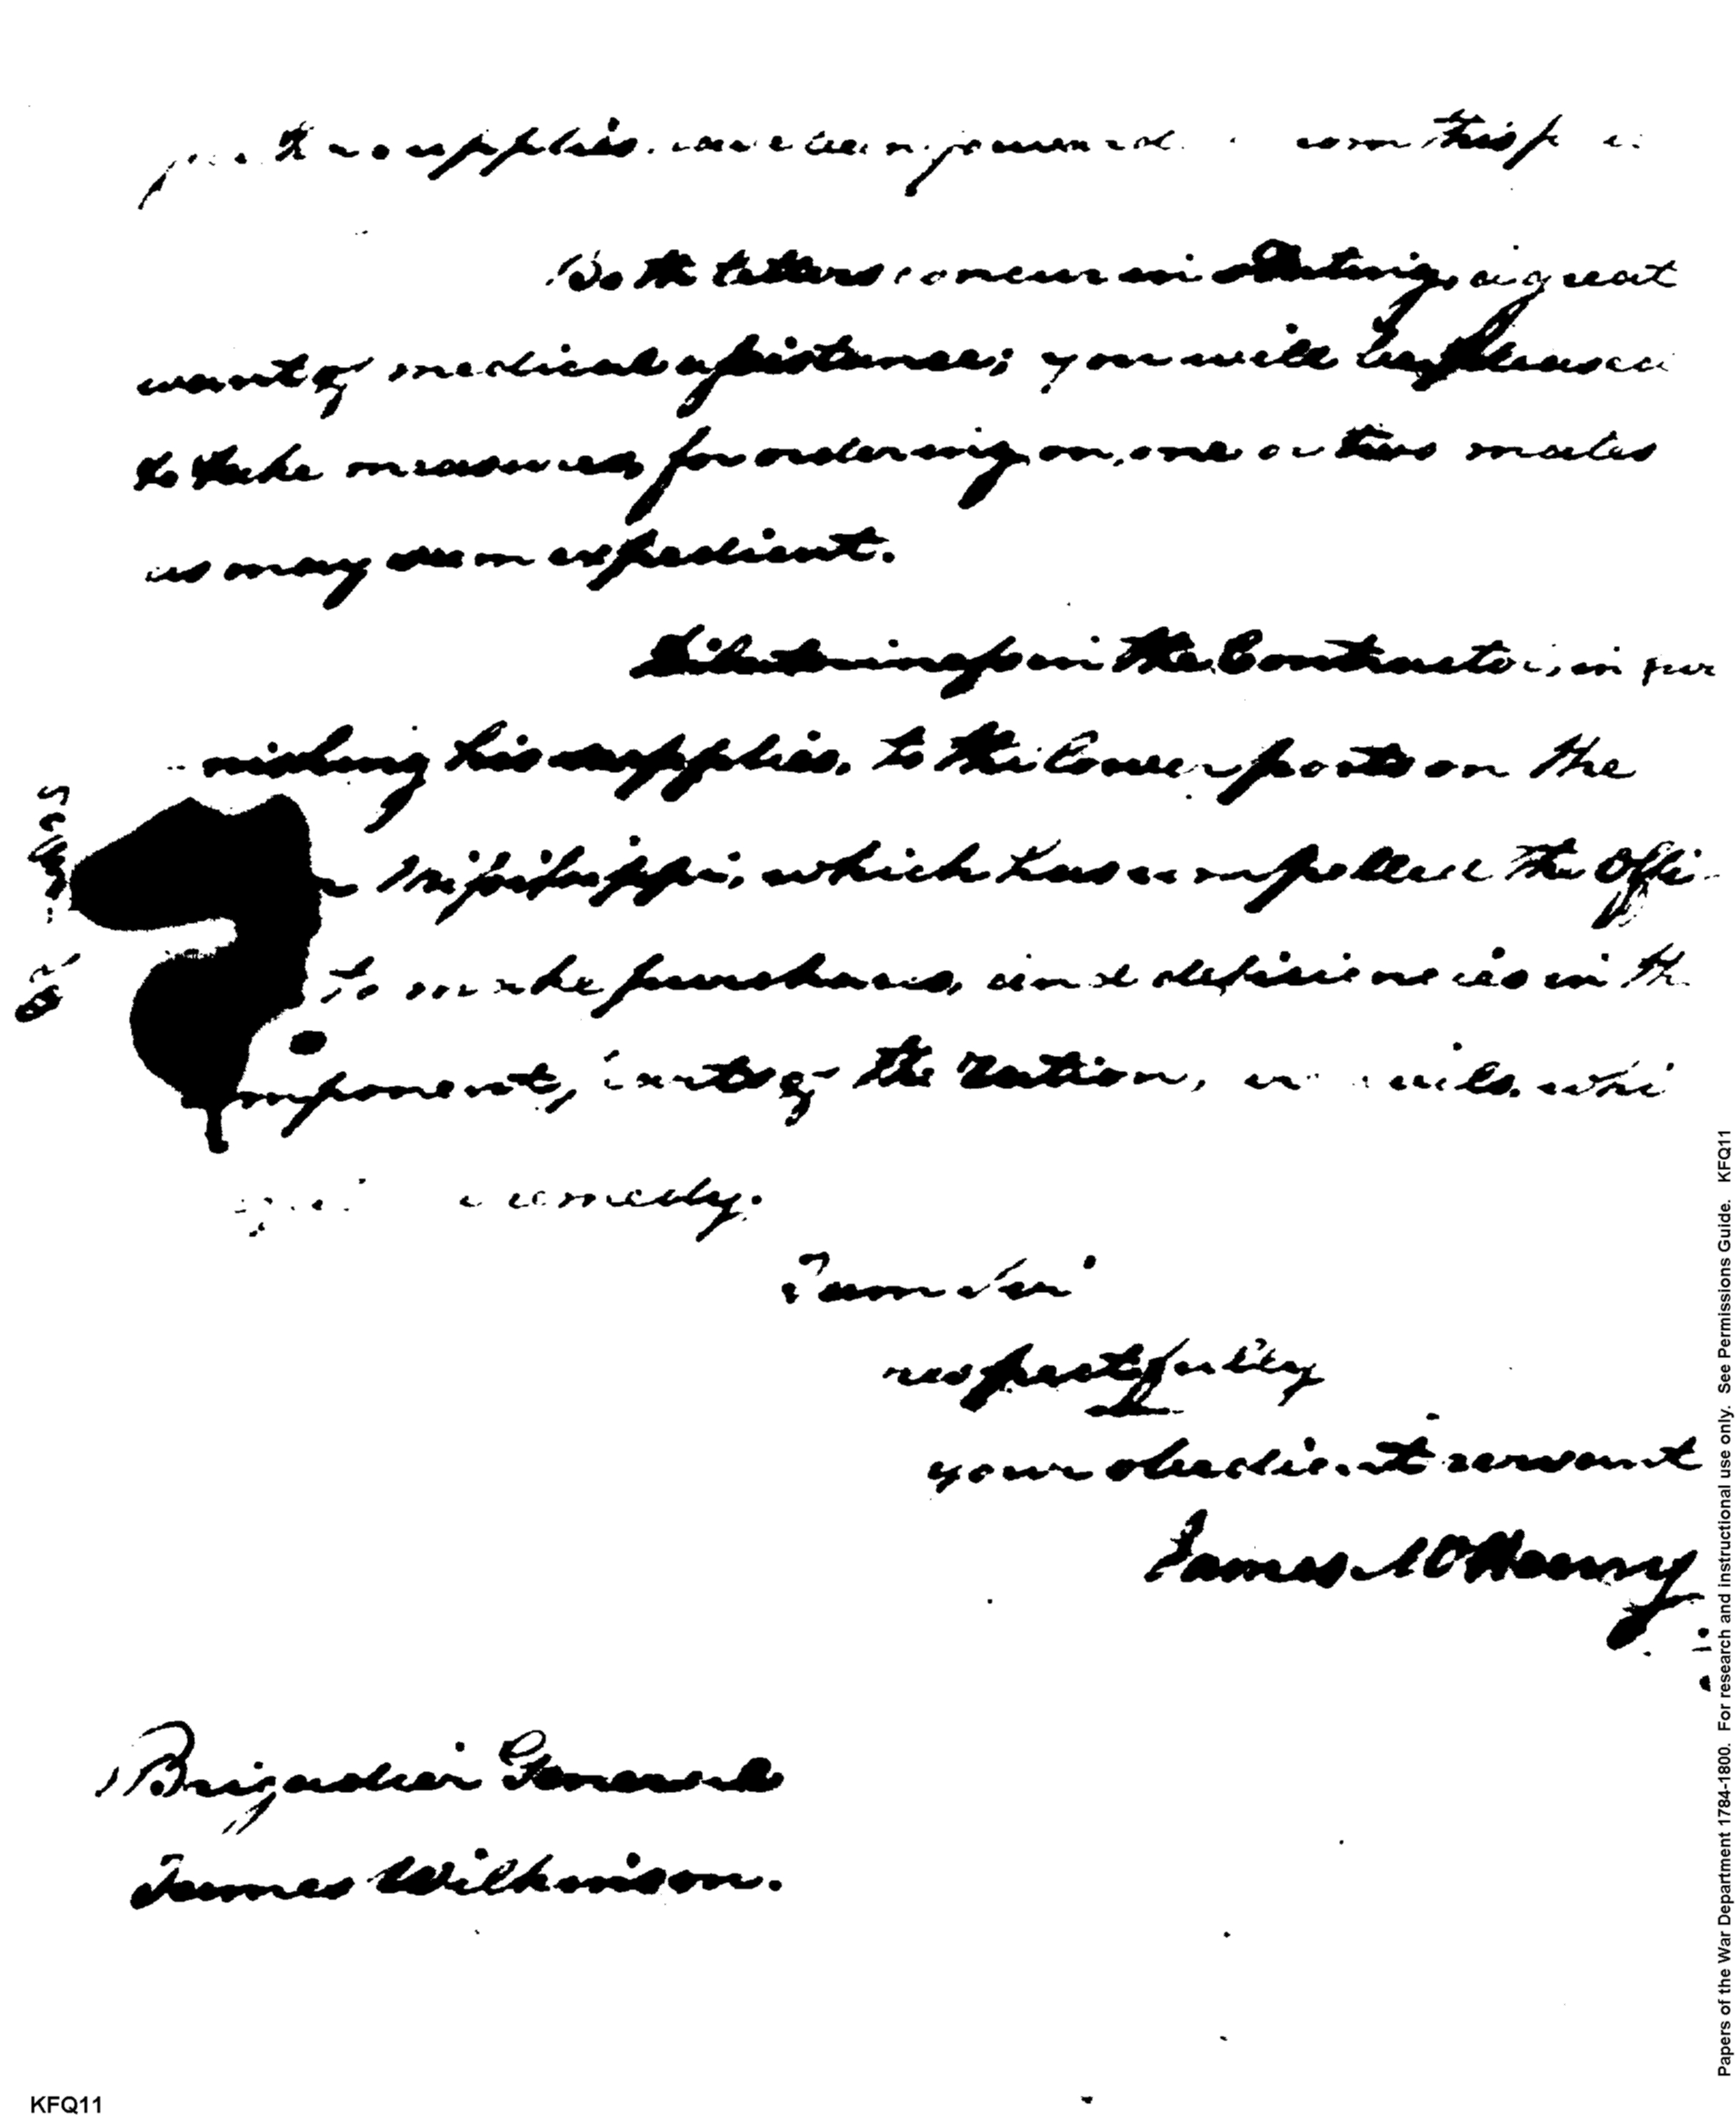 supplies
As the letters concur in stating, a great
want of medical assistance; you will be pleased
to take measures for ordering on, one or two mates
as may seem expedient.
in the Contractor, in fur
nishing his supplies, to the Lower posts on the
Mississippi, which has compelled the Offi-
to make purchases, and deficiencies in th
component parts of the ration,
remedy.
I am Sir
respectfully
your obedient servant
James McHenry
Brigadier General
James Wilkinson.
KFQ11
Papers of the War Department 1784-1800. For research and instructional use only. See Permissions Guide. KFQ11